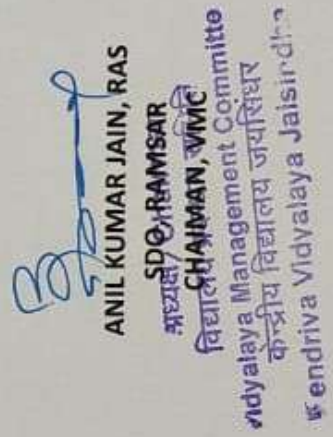 ANIL KUMAR JAIN, RAS
SDO, RAMSAR
अध्यक्ष/
CHAIMAN, VMC
विद्यालय
Vidyalaya Management Committe
केन्द्रीय विद्यालय जयसिंधर
endriya Vidyalaya Jaisindh